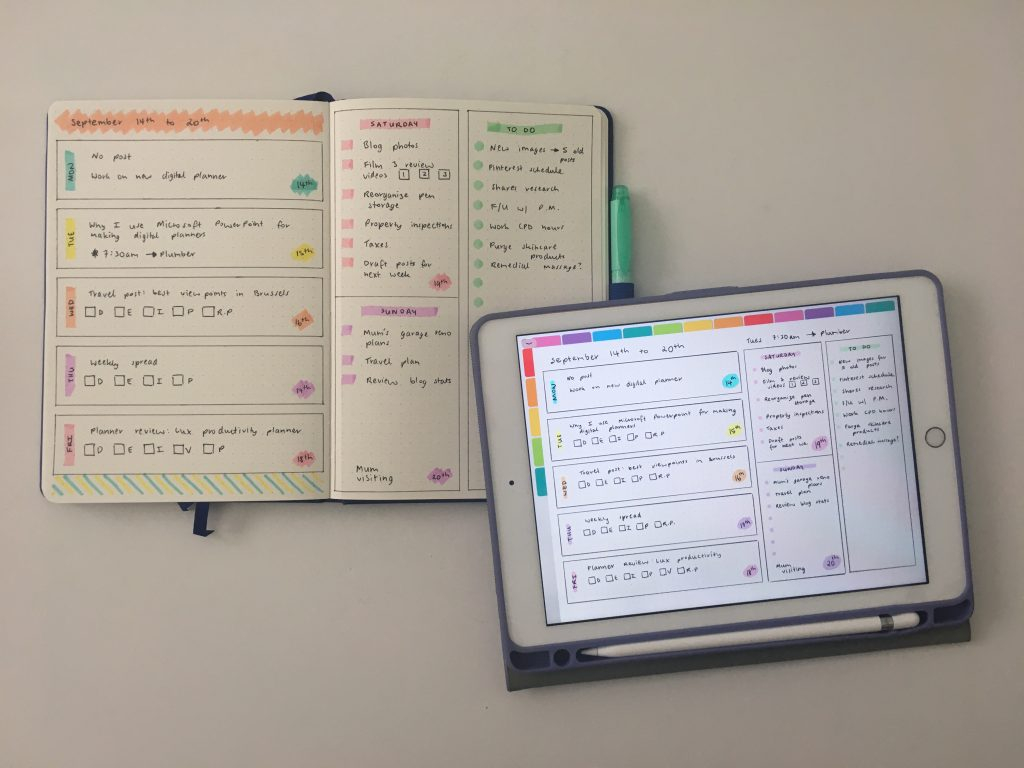 September 14th to 20th
MON
No post
Work on new digital planner
14th
TUE
Why I use Microsoft PowerPoint for
making digital planners
* 7:30am → Plumber
15th
WED
Travel post: best viewpoints in Brussels
D E I P R.P.
16th
THU
Weekly spread
D E I P
17th
FRI
Planner review: Lux productivity planner
D E I V P
18th
SATURDAY
Blog photos
Film 3 review
videos 1 2 3
Reorganize pen
storage
Property inspections
Taxes
Draft posts for
next week
19th
SUNDAY
Mum's garage reno
plans
Travel plan
Review blog stats
Mum
visiting
20th
TO DO
New images → 5 old
posts
Pinterest schedule
Shares research
F/U w/ P.M.
Work CPD hours
Purge skincare
products
Remedial massage?
September 14th to 20th
Tues 7:30am → Plumber
MON
No post
Work on new digital planner
14th
TUE
Why I use microsoft Powerpoint for making
digital planners
D E I P R.P
15th
WED
Travel post: best viewpoints in Brussels
D E I P R.P
16th
THU
Weekly spread
D E I P R.P.
17th
FRI
Planner Review Lux productivity
D E I P V R.P
18th
SATURDAY
Blog photos
Film 3 review
videos 1 2 3
Reorganize pen
storage
Property inspections
Taxes
Draft posts
for next wk
19th
SUNDAY
Mum's garage reno
plans
Travel plan
Review blog stats
Mum
visiting
20th
TO DO
New images for
5 old posts
Pinterest schedule
Shares research
F/U w/ P.M.
Work CPD hours
Purge skincare
products
Remedial massage?